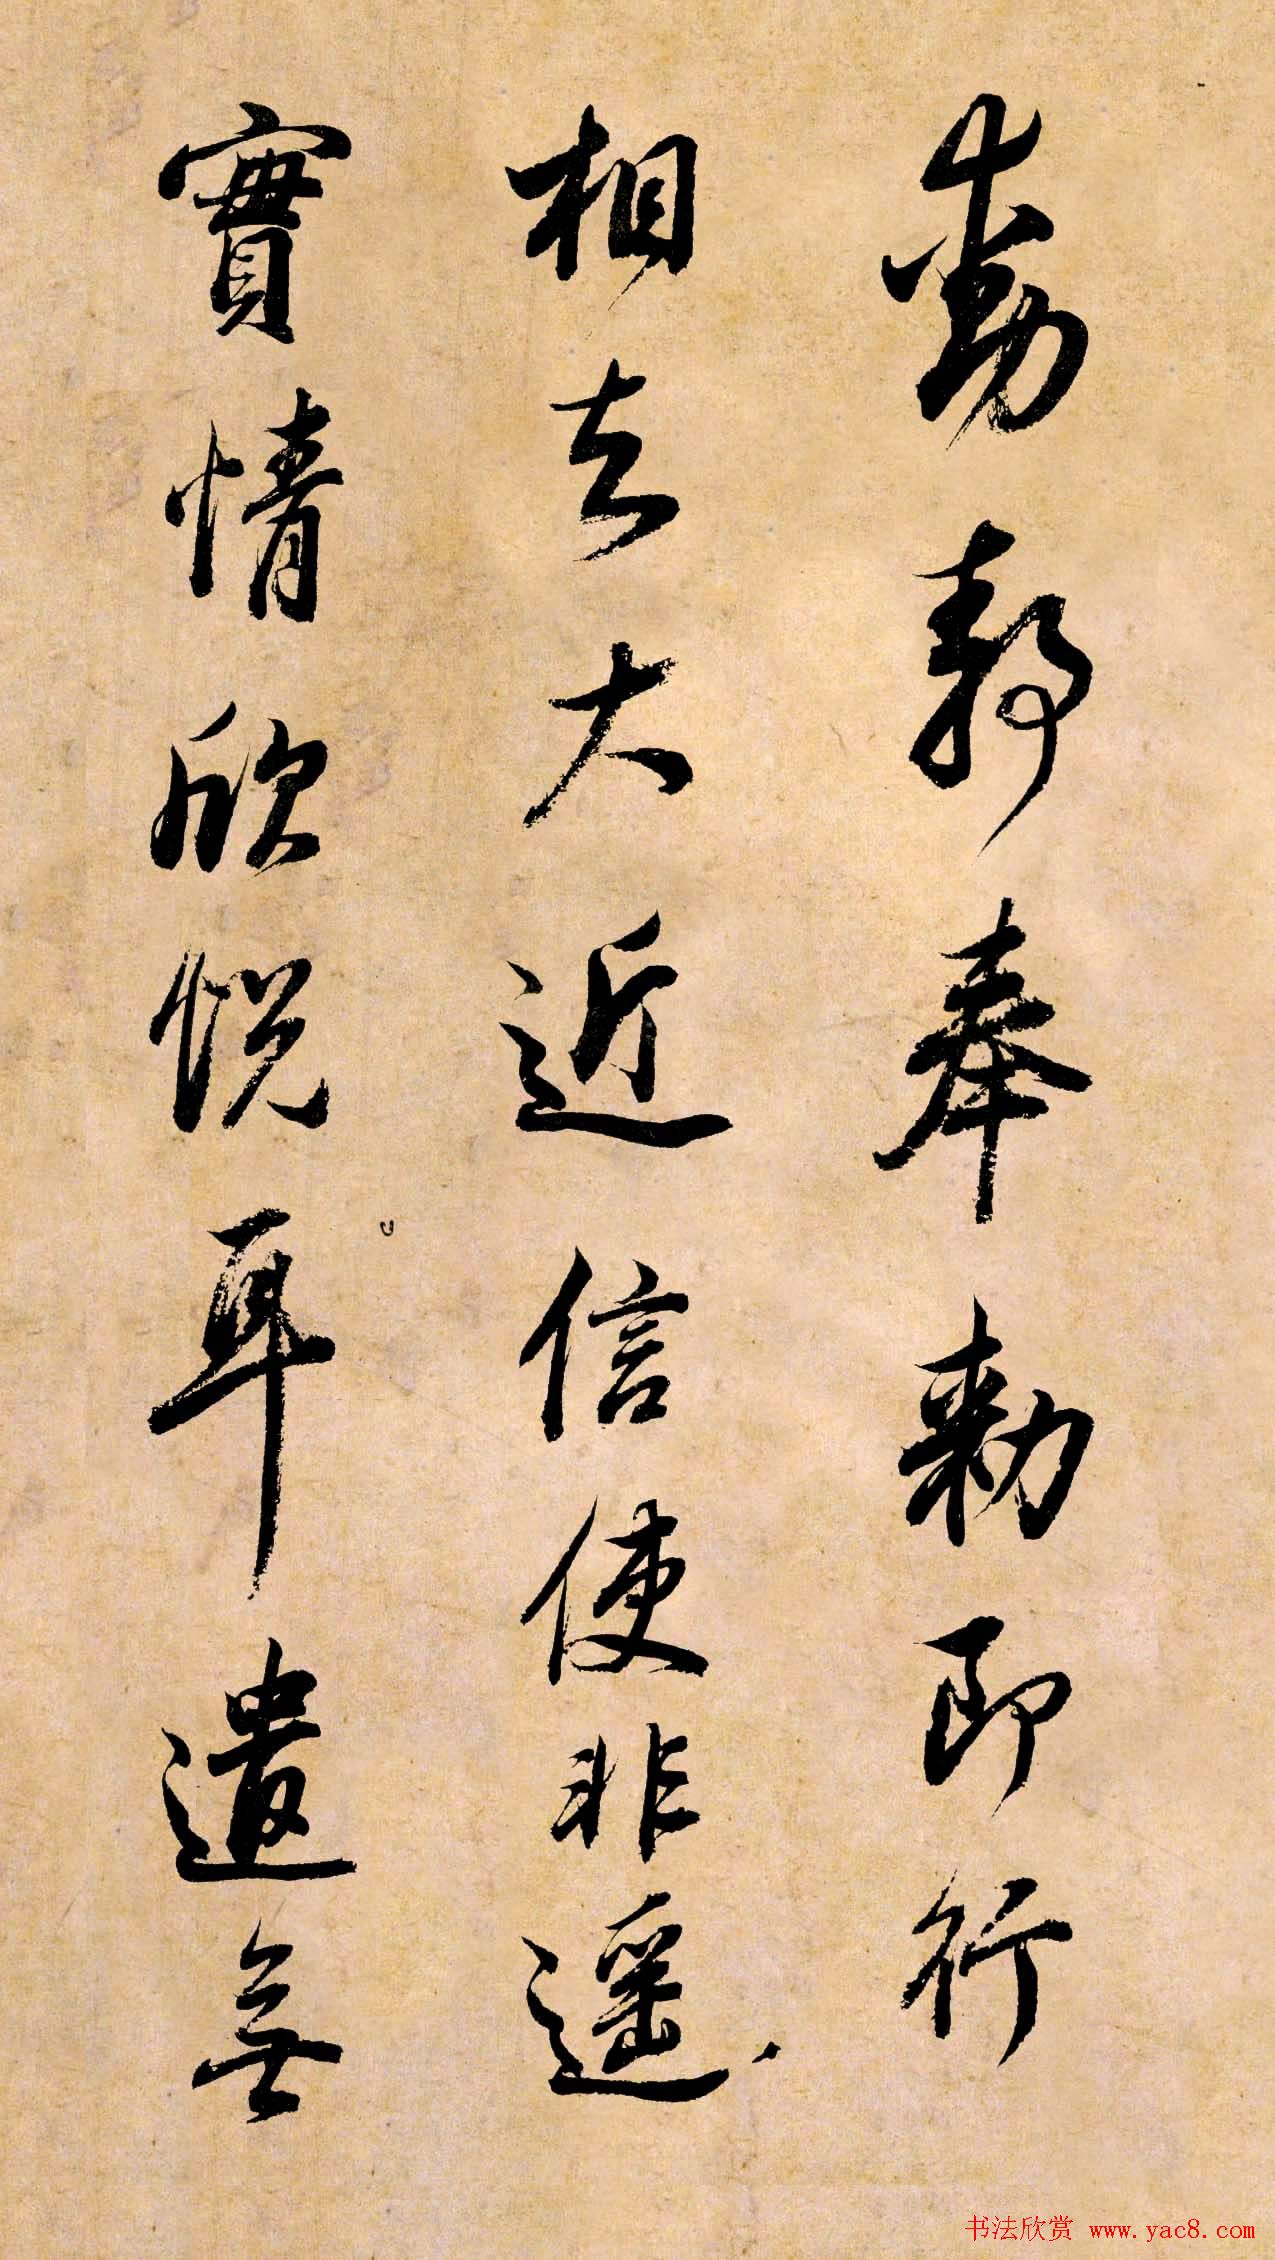 動静奉勅即行
相去大近信使非遥
實情欣悦耳遣無
书法欣赏 www.yac8.com